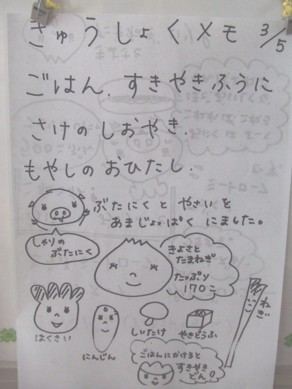 きゅうしょくメモ 3/5
ごはん、すきやきふうに
さけのしおやき、
もやしのおひたし、
ぶたにくと やさいを
あまじょっぱく にました。
しゃりの
ぶたにく
きよさと
たまねぎ
たっぷり
170こ
ねぎ
はくさい
にんじん
しいたけ
やきどうふ
ごはんにかけると
すきやき
どん